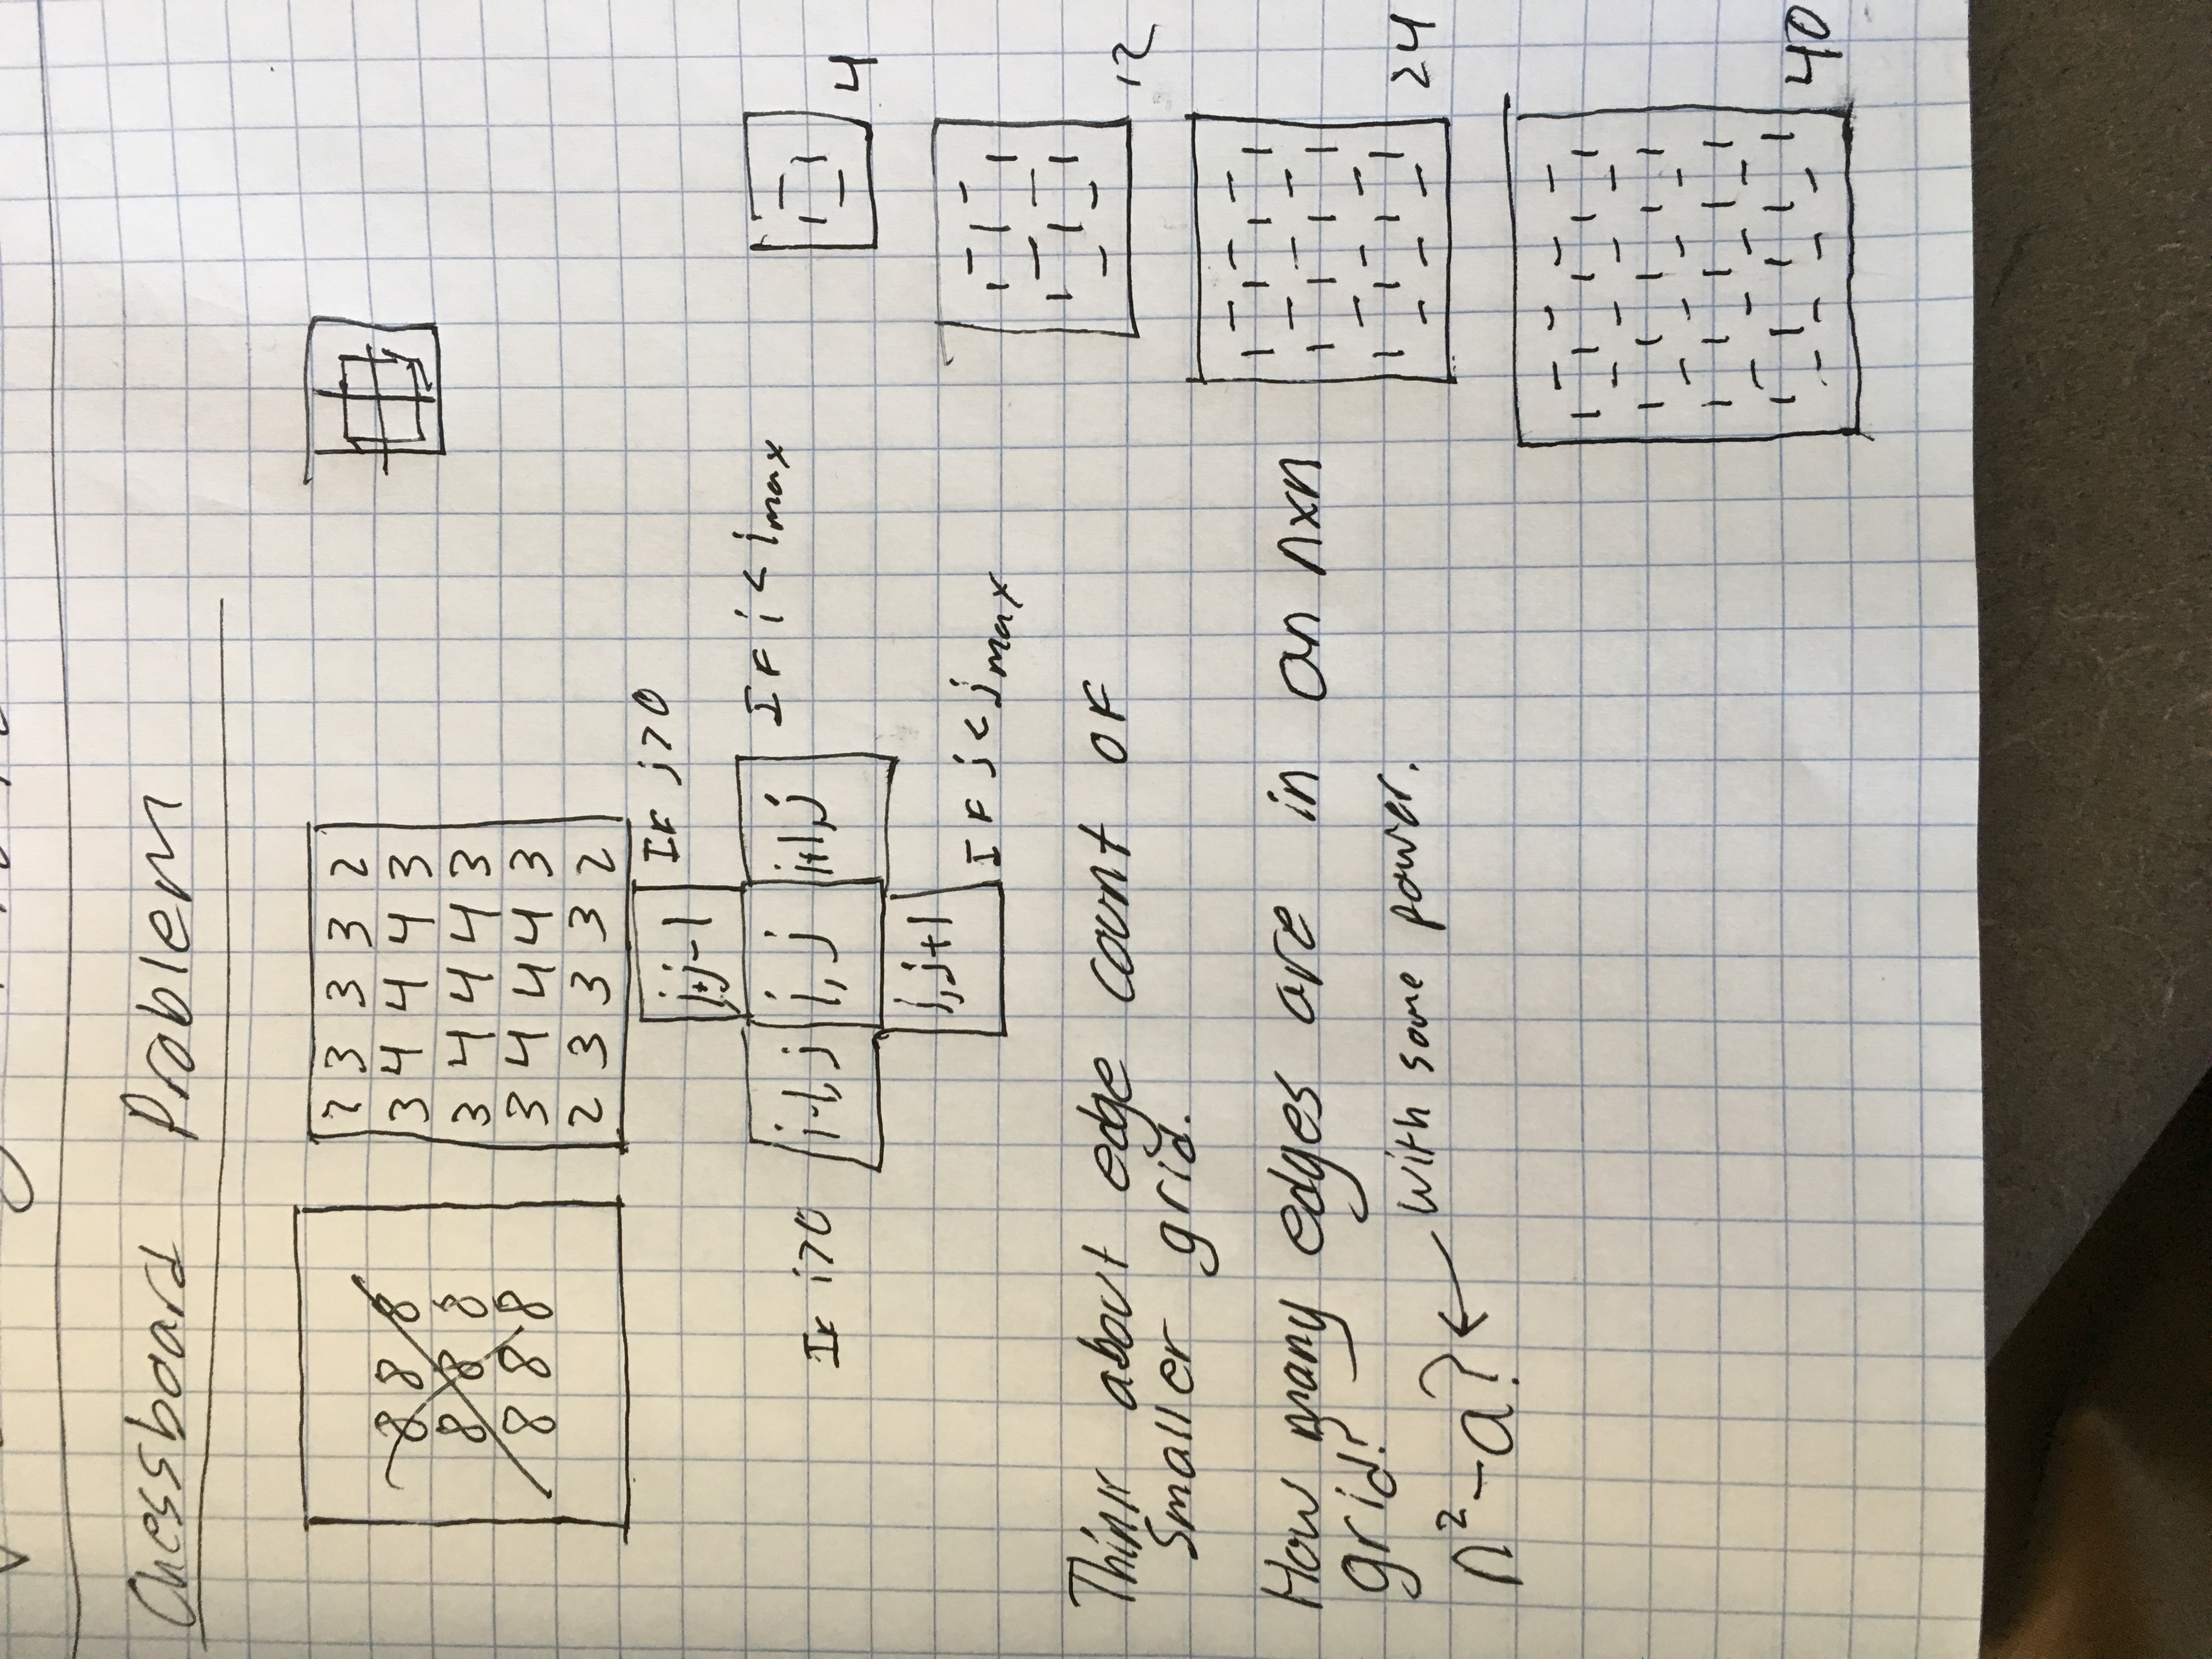 Chessboard Problem
8 8 8
8 8 8
8 8 8
2 3 3 3 2
3 4 4 4 3
3 4 4 4 3
3 4 4 4 3
2 3 3 3 2
i,j-1 If j>0
If i>0 i-1,j i,j i+1,j If i < imax
i,j+1 If j < jmax
Think about edge count of
smaller grid.
How many edges are in an nxn
grid?
with some power.
n²-a? ←
4
12
24
40